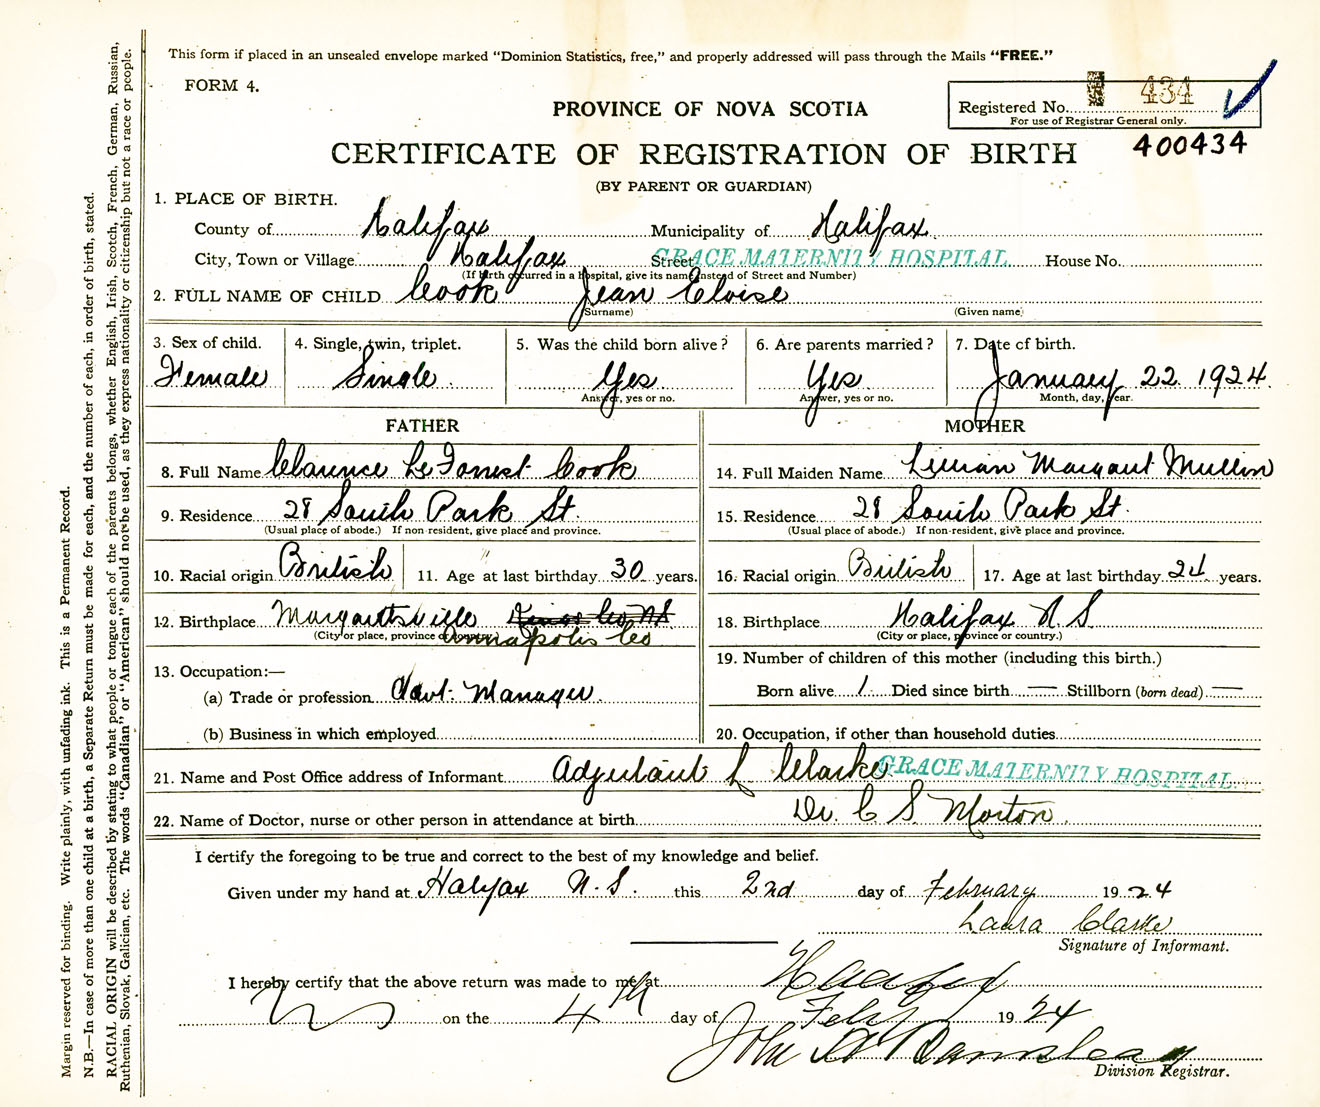 This form if placed in an unsealed envelope marked “Dominion Statistics, free,” and properly addressed will pass through the Mails “FREE.”
FORM 4.
434
Registered No.
For use of Registrar General only.
PROVINCE OF NOVA SCOTIA
400434
CERTIFICATE OF REGISTRATION OF BIRTH
(BY PARENT OR GUARDIAN)
1. PLACE OF BIRTH.
County of Halifax Municipality of Halifax
City, Town or Village Halifax Street GRACE MATERNITY HOSPITAL House No.
(If birth occurred in a hospital, give its name instead of Street and Number)
2. FULL NAME OF CHILD Cook Jean Eloise
(Surname) (Given name)
3. Sex of child. 4. Single, twin, triplet. 5. Was the child born alive? 6. Are parents married? 7. Date of birth.
Female Single Yes Yes January 22 1924
Answer, yes or no. Answer, yes or no. Month, day, year.
FATHER MOTHER
8. Full Name Clarence LeForrest Cook 14. Full Maiden Name Lillian Margaret Mullin
9. Residence 28 South Park St. 15. Residence 28 South Park St.
(Usual place of abode.) If non-resident, give place and province. (Usual place of abode.) If non-resident, give place and province.
10. Racial origin British 11. Age at last birthday 30 years. 16. Racial origin British 17. Age at last birthday 24 years.
12. Birthplace Margaretsville Kings Co NS 18. Birthplace Halifax N.S
(City or place, province or country.) Annapolis Co (City or place, province or country.)
13. Occupation:— 19. Number of children of this mother (including this birth.)
(a) Trade or profession Manager. Born alive 1 Died since birth — Stillborn (born dead) —
(b) Business in which employed 20. Occupation, if other than household duties
21. Name and Post Office address of Informant Adjutant L Clarke GRACE MATERNITY HOSPITAL
22. Name of Doctor, nurse or other person in attendance at birth Dr. C S Morton
I certify the foregoing to be true and correct to the best of my knowledge and belief.
Given under my hand at Halifax N.S. this 2nd day of February 1924
Laura Clarke
Signature of Informant.
I hereby certify that the above return was made to me at Halifax
NS on the 4th day of Feby 1924
John A
Division Registrar.
Margin reserved for binding. Write plainly, with unfading ink. This is a Permanent Record.
N.B.—In case of more than one child at a birth, a Separate Return must be made for each, and the number of each, in order of birth, stated.
RACIAL ORIGIN will be described by stating to what people or tongue each of the parents belongs, whether English, Irish, Scotch, French, German, Russian,
Ruthenian, Slovak, Galician, etc. The words “Canadian” or “American” should not be used, as they express nationality or citizenship but not a race or people.